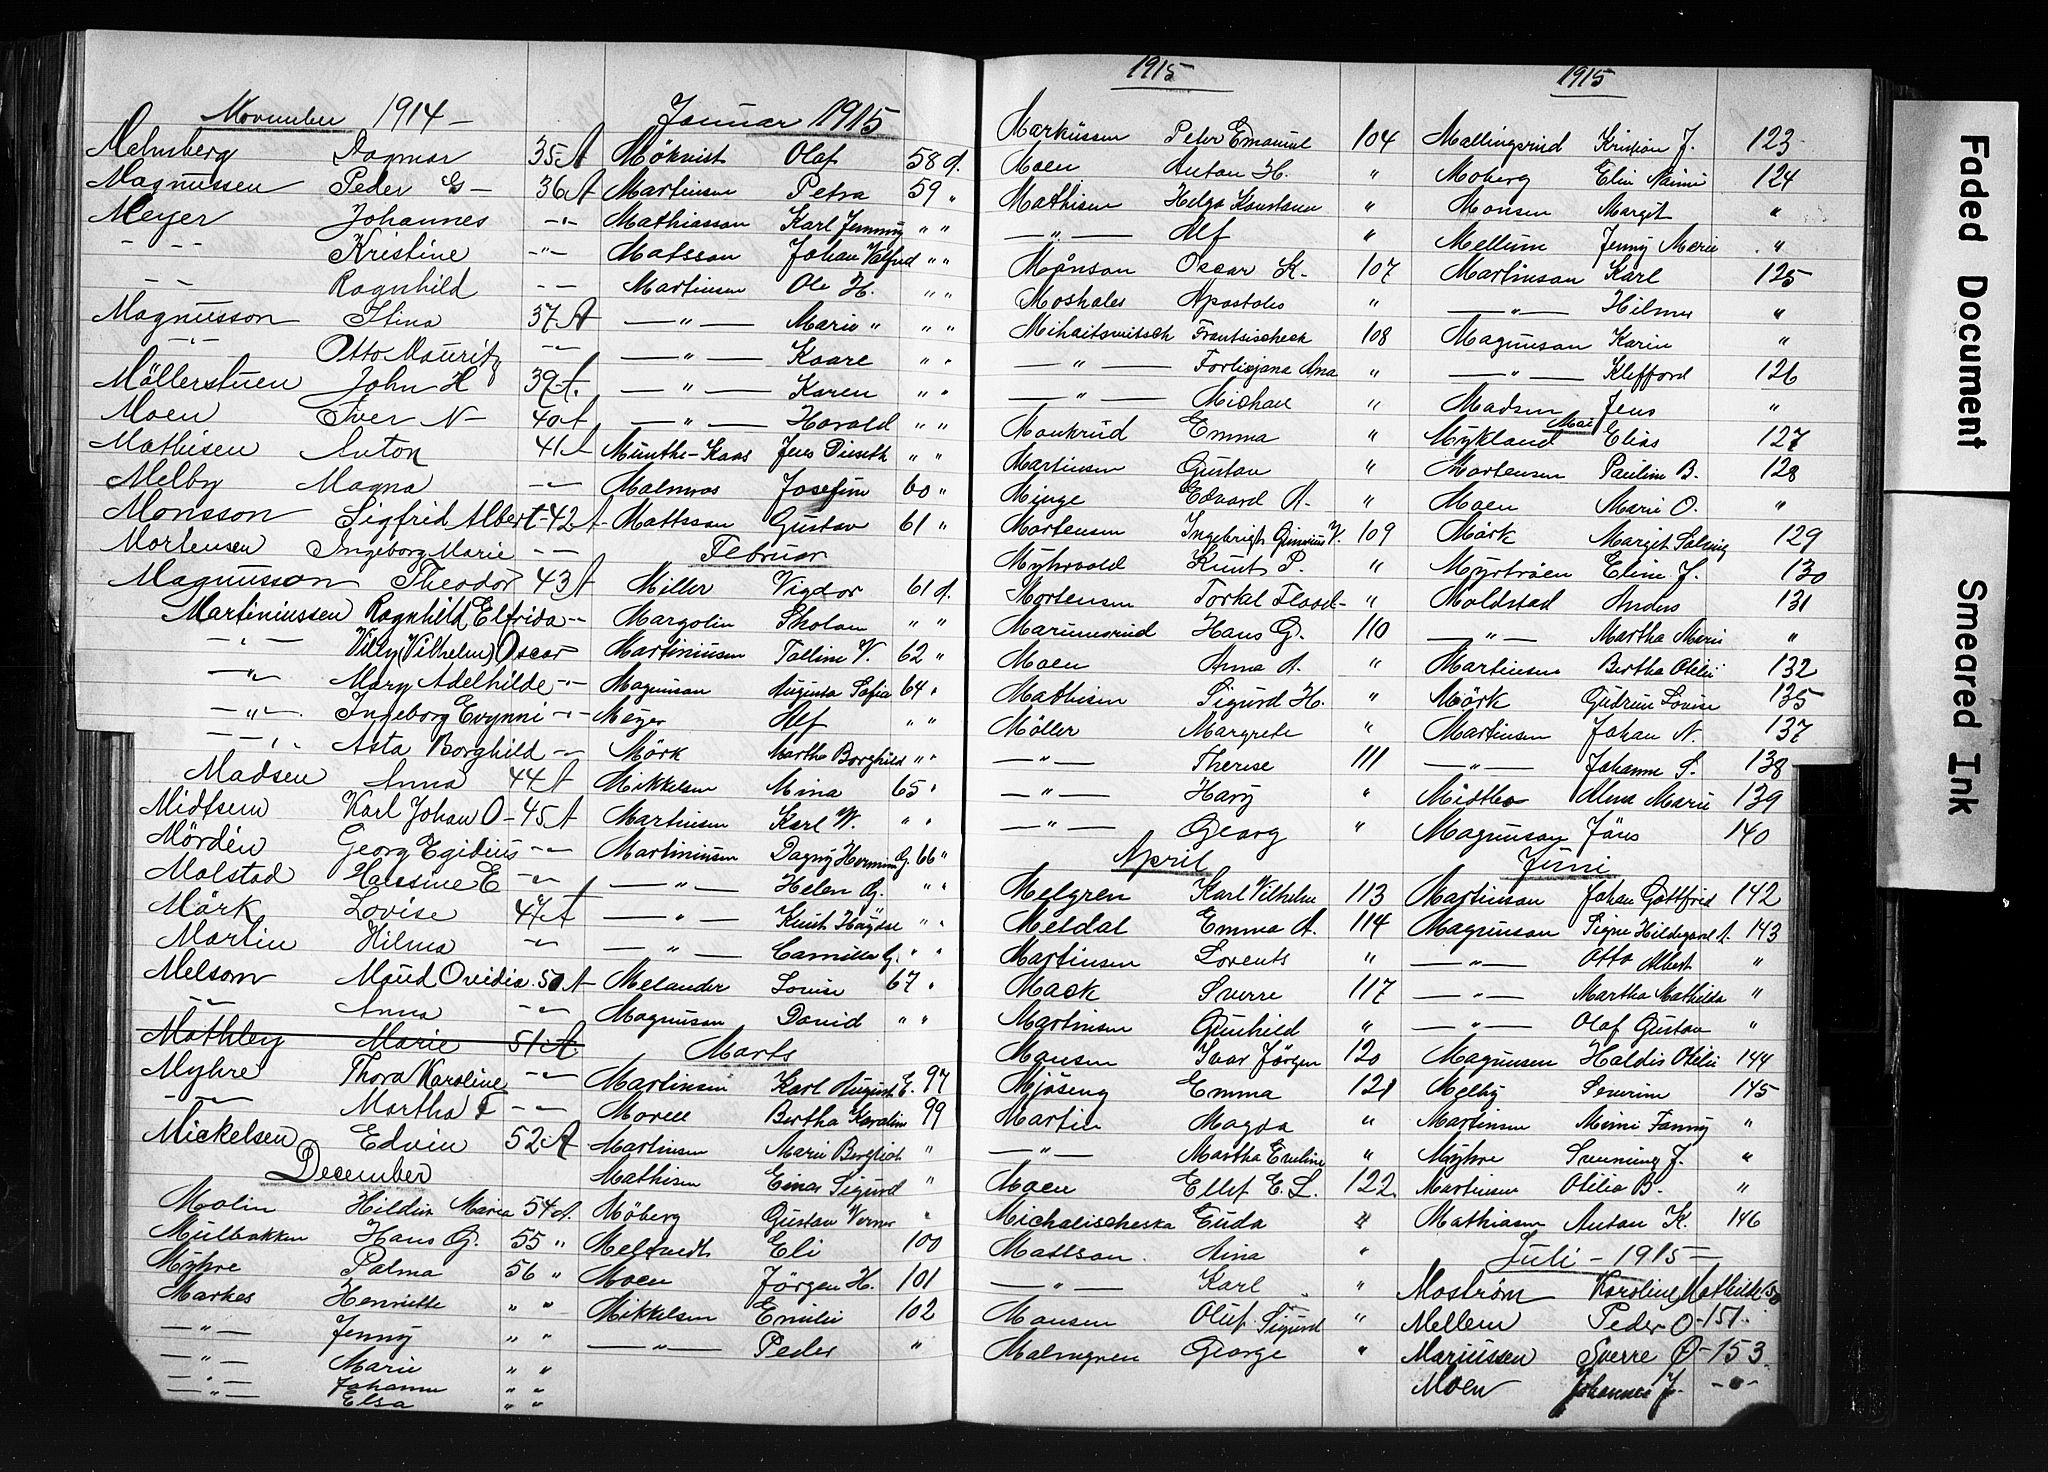 November 1914 -
Malmberg Dagmar 35 A
Magnussen Peder G - 36 A
Meyer Johannes -"-
- - - Kristine -"-
- - Ragnhild - -
Magnusson Stina 37 A
-"- Otto Mauritz -"-
Möllerstuen John H 39 A.
Moen Iver N - 40 A
Mathisen Anton 41 A
Melby Magna -"-
Monsson Sigfrid Albert - 42 A
Mortensen Ingeborg Marie - -
Magnusson Theodor 43 A
Martiniussen Ragnhild Elfrida - -
-"- Villy (Vilhelm) Oscar
-"- Mary Adelhilde -"-
-"- Ingeborg Evynni -"-
-"- Asta Borghild -"-
Madsen Anna 44 A
Midtsem Karl Johan O - 45 A
Mördén Georg Egidius -"-
Malstad Halssine E -"-
Mörk Lovise 47 A
Martin Hilma -"-
Melsom Maud Ovidia 50 A
-"- Anna -"-
Mathley Marie 51 A
Myhre Thora Karoline -"-
-"- Martha F - -
Mickelsen Edvin 52 A
December
Molin Hildur Maria 54 A.
Mulbakken Hans G. 55 "
Myhre Palma 56 "
Markes Henriette " "
-"- Jenny " "
-"- Marie " "
-"- Johanne " "
-"- Elsa " "
Januar 1915
Mökvist Olaf 58 d.
Martinsen Petra 59 "
Mathiasson Karl Jenning " "
Matsson Johan Valfred " "
Martinsen Ole H. " "
-"- Marie " " "
-"- Kaare " "
-"- Karen " "
-"- Harald " "
Munthe-Kaas Jens Dieseth " "
Malmros Josefine 60 "
Mattsson Gustav 61 "
Februar
Miller Vigdor 61 d.
Margolin Skolan " "
Martiniusen Talline V. 62 "
Magnusson Augusta Sofia 64 "
Meyer Alf " "
Mörk Martha Borghild " "
Mikkelsen Mina 65 "
Martinsen Karl W. " "
Martiniusen Dagny Hermine G. 66 "
-"- Helen G. " "
-"- Knut Haydse " "
-"- Camilla G. " "
Melander Lovise 67 "
Magnuson David " "
Marts
Martinsen Karl August E. 97
Morell Bertha Karoline 99
Martinsen Marie Berglioth "
Mathisen Einar Sigurd "
Möberg Gustav Verner "
Meltvedt Eli 100
Moen Jörgen H. 101
Mikkelsen Emilie 102
-"- Peder "
1915
Markussen Peter Emanuel 104
Moen Anton H. "
Mathisen Helga Konstance "
-"- Alf "
Månson Oscar K- 107
Moshales Apostoles "
Mihaitsovitsch Frantsischeck 108
-"- Fortisjana Ana "
-"- Michan "
Monkrud Emma "
Martinsen Gustav "
Minge Edvard A. "
Mortensen Ingebrigt Ginnius V. 109
Myhrvold Knut P. "
Mortensen Torkel Flood- "
Marumsrud Hans G. 110
Moen Anna A. "
Mathisen Sigurd H. "
Möller Margrete "
-"- Therese 111
-"- Hary "
-"- Georg "
April
Melgren Karl Vilhelm 113
Meldal Emma A. 114
Martinsen Lorents "
Mack Sverre 117
Martinsen Gunhild "
Monsen Ivar Jörgen 120
Mjöseng Emma 121
Martin Magda "
-"- Martha Eveline "
Moen Ellef E. L. 122
Michalischeska Euda "
Mattson Aina "
-"- Karl "
Monsen Oluf Sigurd "
Malmgren George "
1915
Mallingsrud Kristian J. 123
Moberg Elin Naimi 124
Monsen Margit "
Mellum Jenny Marie "
Martinson Karl 125
-"- Hilma "
Magnuson Karin "
-"- Klefford 126
Madsen Jens "
Mai
Mykland Elias 127
Mortensen Pauline B. 128
Moen Marie O. "
Mörk Margit Solveig 129
Myrtröen Eline J. 130
Moldstad Anders 131
-"- Martha Marie "
Martinsen Bertha Otelie 132
Mörk Gudrun Lovise 135
Martinsen Johan N. 137
-"- Johanne S. 138
Midtbo Alma Marie 139
Magnuson Jöns 140
Juni
Martinson Johan Gottfrid 142
Magnuson Signe Hildegard A. 143
-"- Otto Albert "
-"- Martha Mathilda "
-"- Olaf Gustav "
Magnusen Haldis Otelie 144
Melby Severine 145
Martinsen Mimi Fanny "
Myhre Svenning J. "
Martinsen Otilia B. "
Mathiasen Anton K. 146
Juli - 1915 -
Moström Karoline Mathilde 150
Mellem Peder O - 151 -
Mariussen Sverre Ø - 153
Moen Johannes J. - " -
Faded Document
Smeared Ink